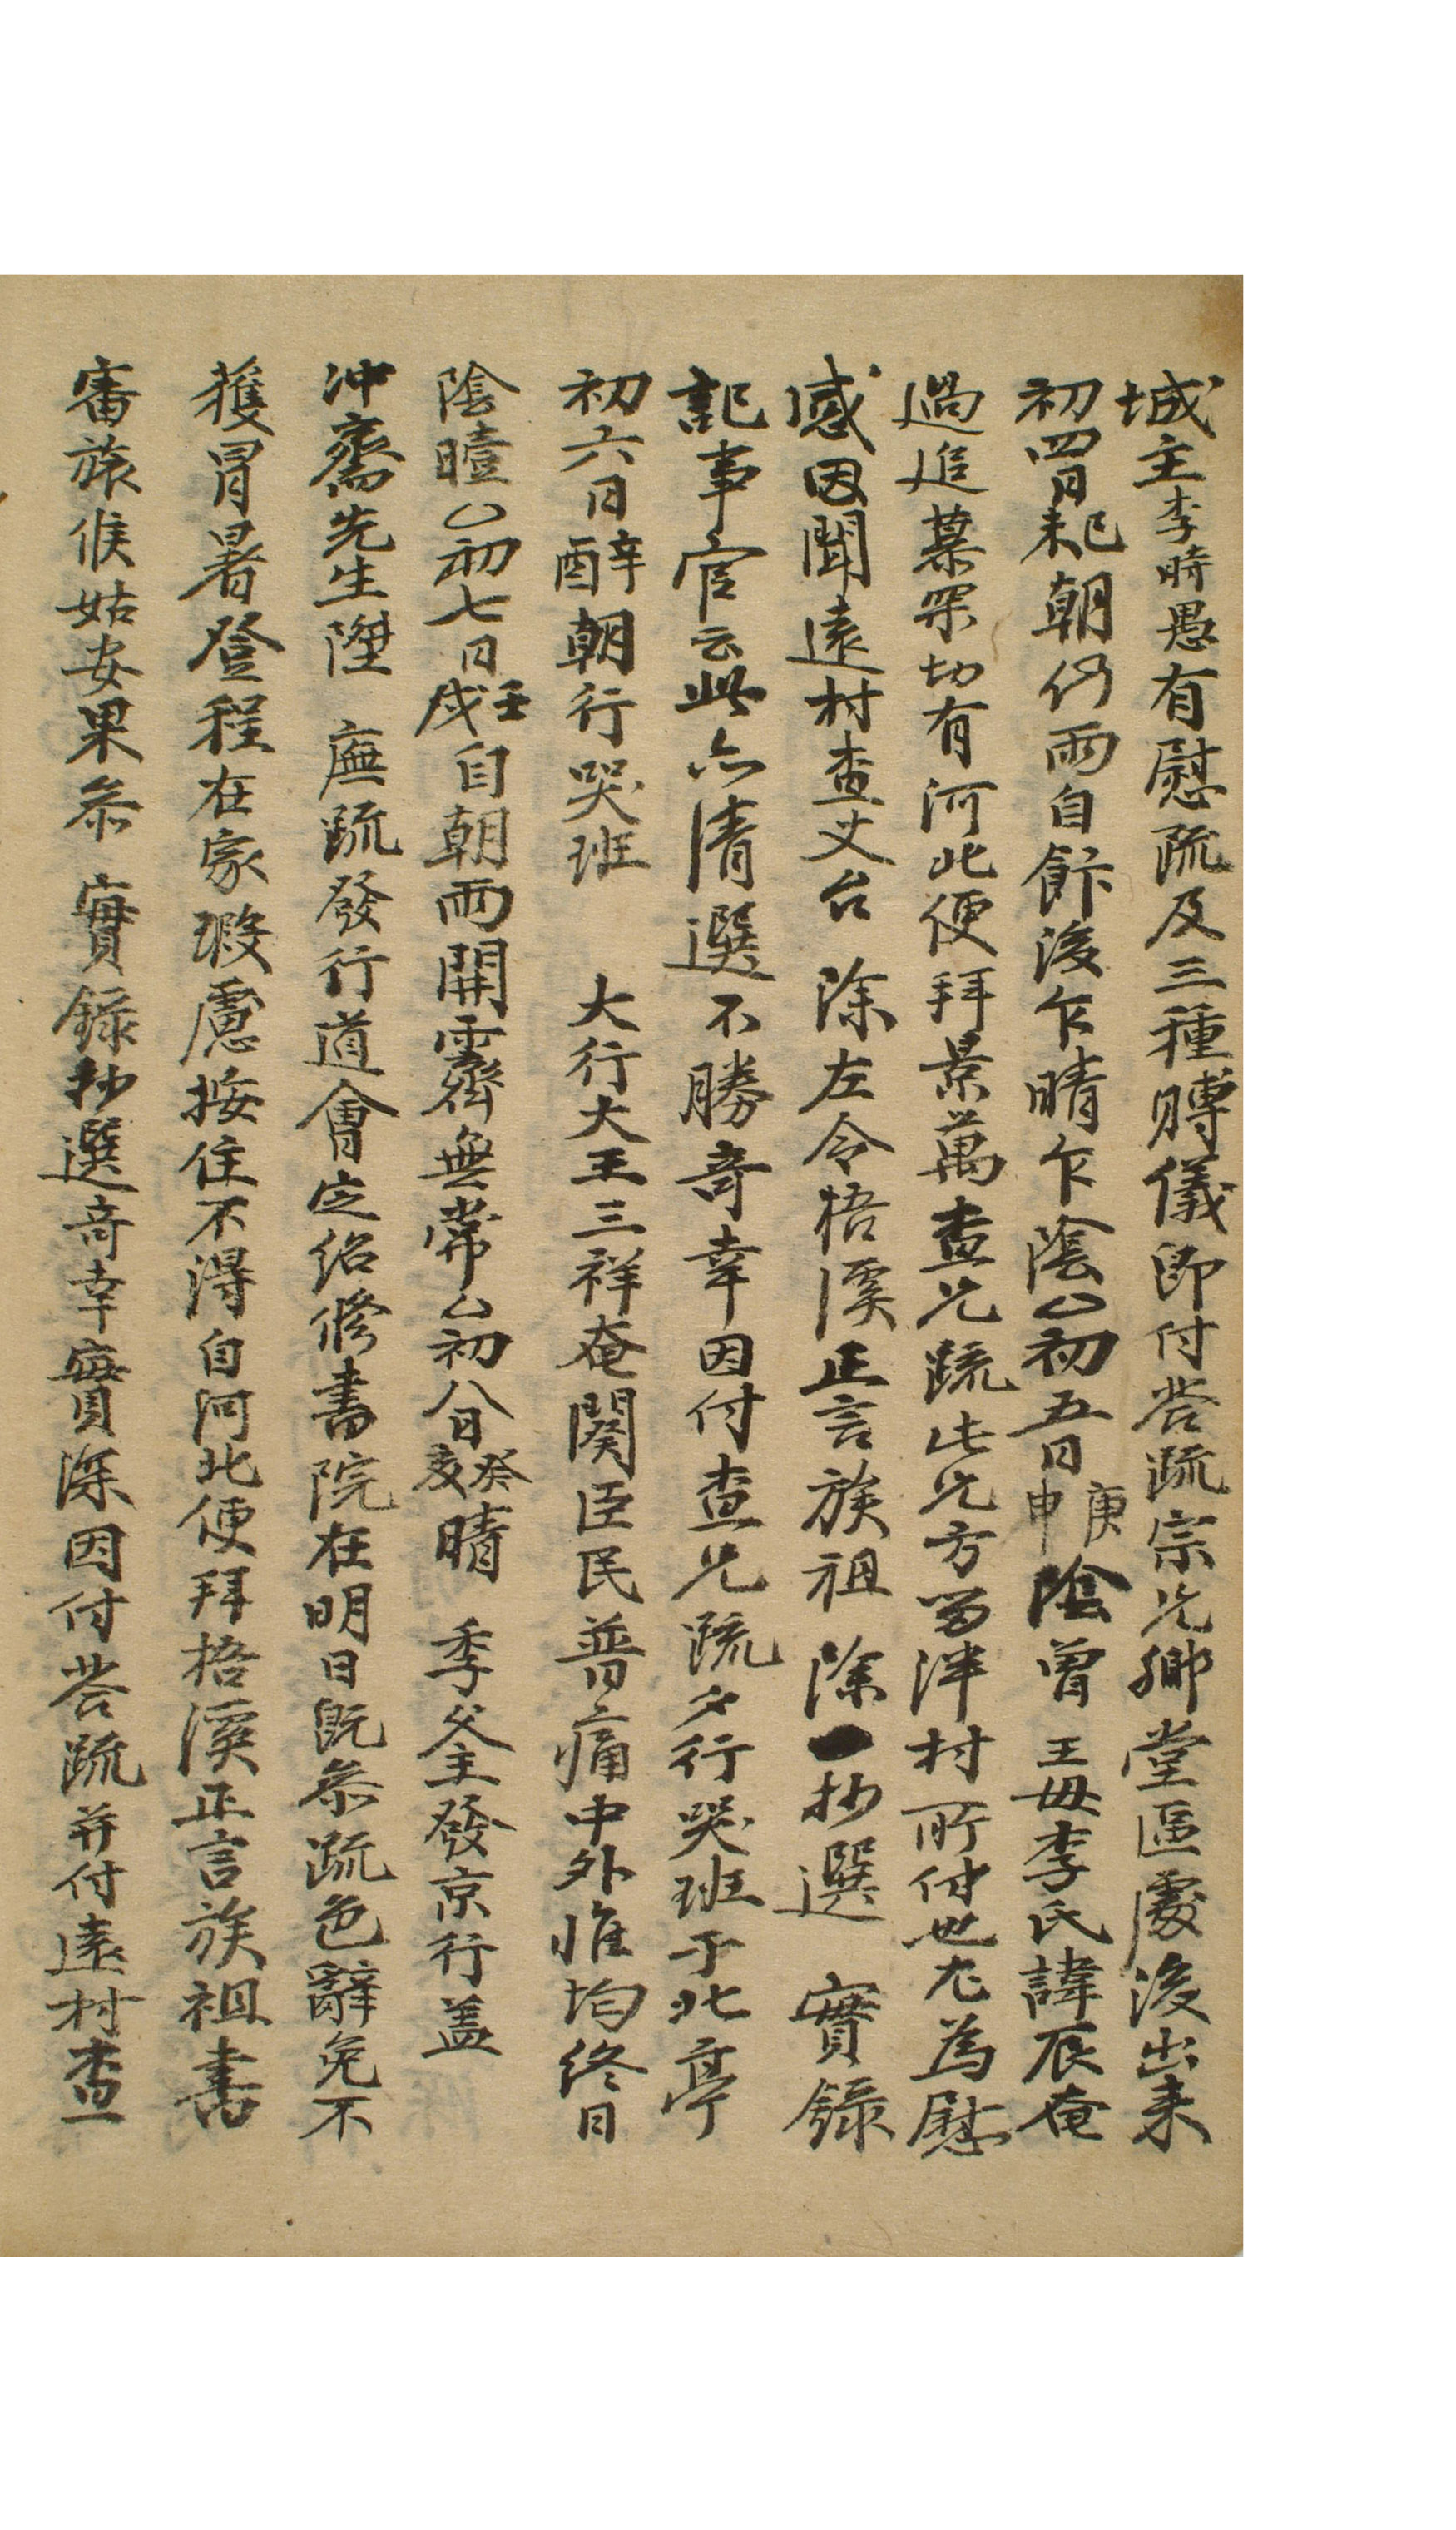 城主李時愚有慰疏及三種賻儀即付答疏宗兄鄉堂區處後出来
初四日己未朝仍雨自飰後乍晴乍陰○初五日庚申陰曾 王母李氏諱辰奄
過追慕罙切有河北便拜景萬查兄疏此兄方留泮村所付也尤為慰
感因聞遠村查丈台 除左令梧溪正言族祖 除抄選 實錄
記事官云此亦清選不勝奇幸因付查兄疏夕行哭班于北亭
初六日辛酉朝行哭班 大行大王三祥奄闋臣民普痛中外惟均終日
陰曀○初七日壬戌自朝雨開霽無常○初八日癸亥晴 季父主發京行盖
冲齋先生陞 廡疏發行道會定紹修書院在明日旣叅疏色辭免不
獲冒暑登程在家瑕慮按住不得自河北便拜梧溪正言族祖書
審旅候姑安果叅 實錄抄選奇幸實深因付答疏并付遠村查